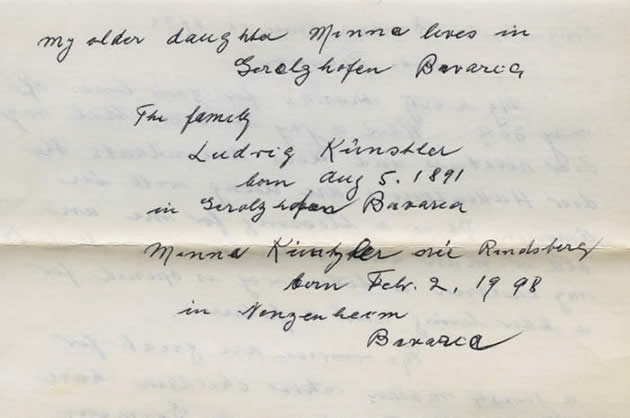 My older daughter Minna lives in
Gerolzhofen Bavaria
The family
Ludvig Künstler
born Aug 5. 1891
in Gerolzhofen Bavaria
Minna née Rindsberg
born Febr. 2. 1998
in Nenzenheim
Bavaria